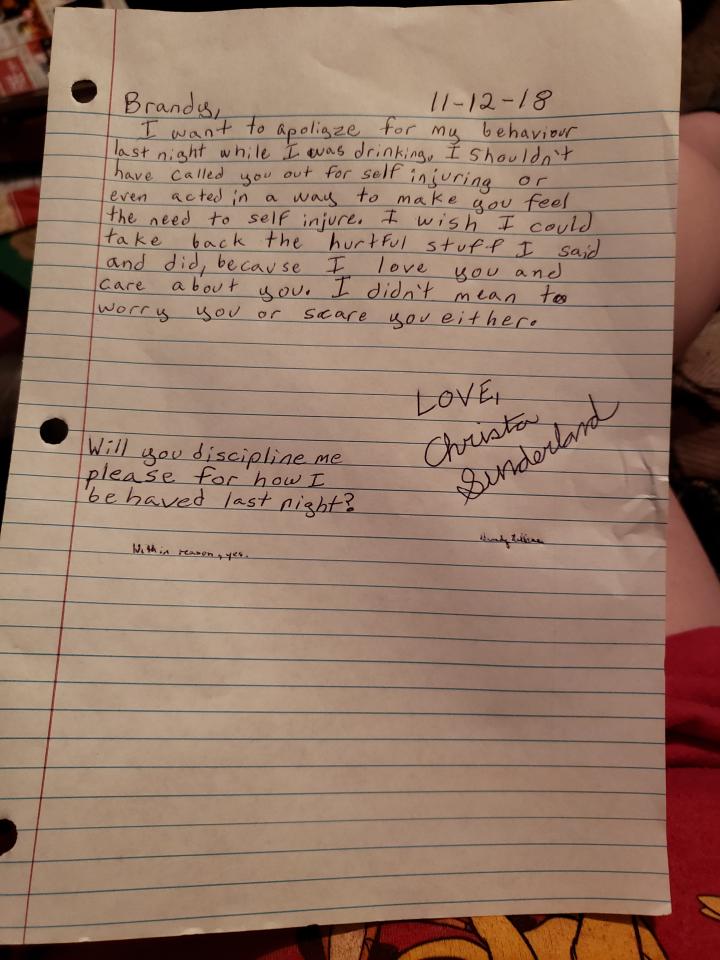 Brandy,
11-12-18
I want to apoligze for my behaviour
last night while I was drinking. I shouldn't
have called you out for self injuring or
even acted in a way to make you feel
the need to self injure. I wish I could
take back the hurtful stuff I said
and did, because I love you and
care about you. I didn't mean to
worry you or scare you either.
LOVE,
Christa
Sunderland
Will you discipline me
please for how I
behaved last night?
Within reason, yes.